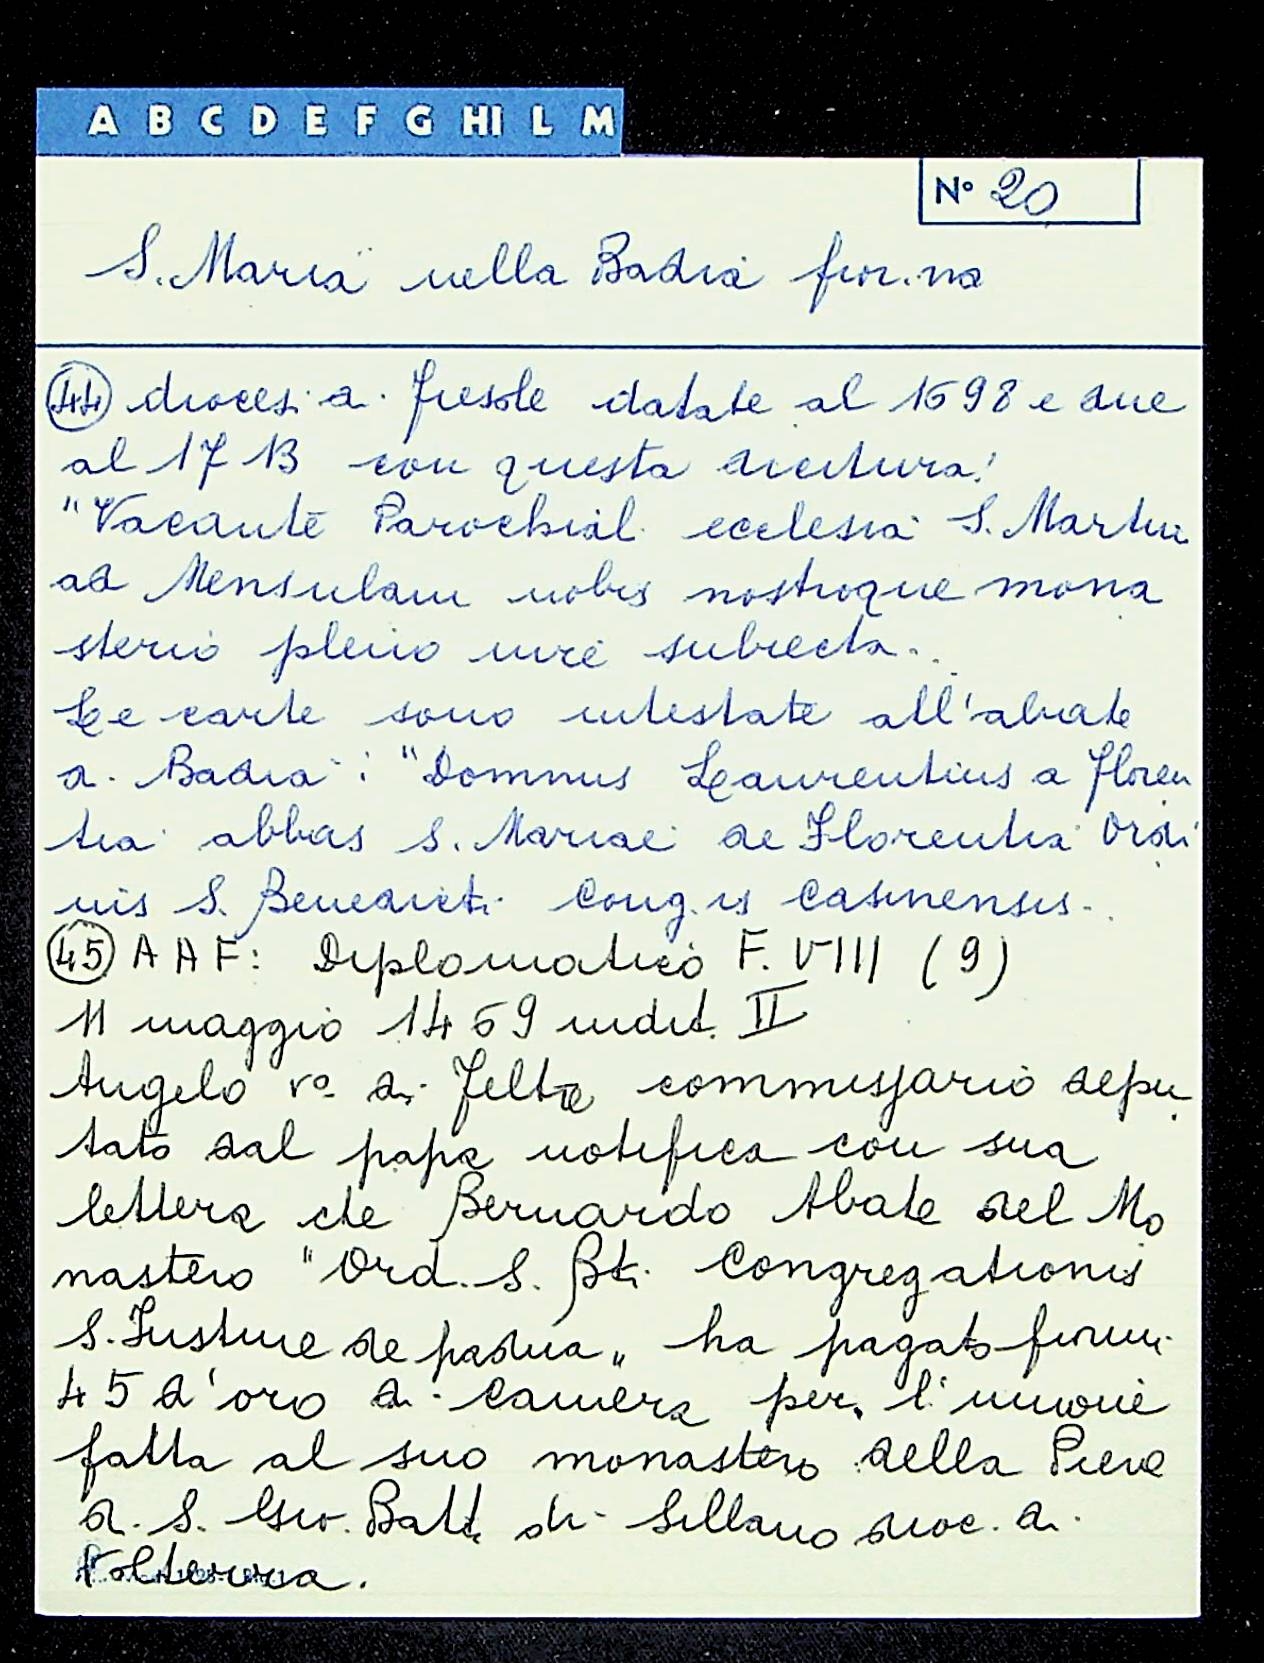 A B C D E F G HI L M
N° 20
S. Maria nella Badia fior.na
44 diocesi di Fiesole datate al 1698 e due
al 1713 con questa dicitura:
"Vacante Parochial. ecclesia S. Martini
ad Mensulam nobis nostroque mona
sterio pleno iure subiecta..
Le carte sono intestate all'abate
di Badia: "Domnus Laurentius a Floren
tia abbas S. Mariae de Florentia Ordi
nis S. Benedicti Cong.is Casinensis..
45 AAF: Diplomatico F. VIII (9)
11 maggio 1469 indit. II
Angelo v° di Feltre commissario depu
tato dal papa notifica con sua
lettera che Bernardo Abate del Mo
nastero "Ord. S. Bti. Congregationis
S. Iustine de padua„ ha pagato fiorini
45 d'oro di camera per l'unione
fatta al suo monastero della Pieve
di S. Gio. Batt. di Sillano dioc. di
Volterra.